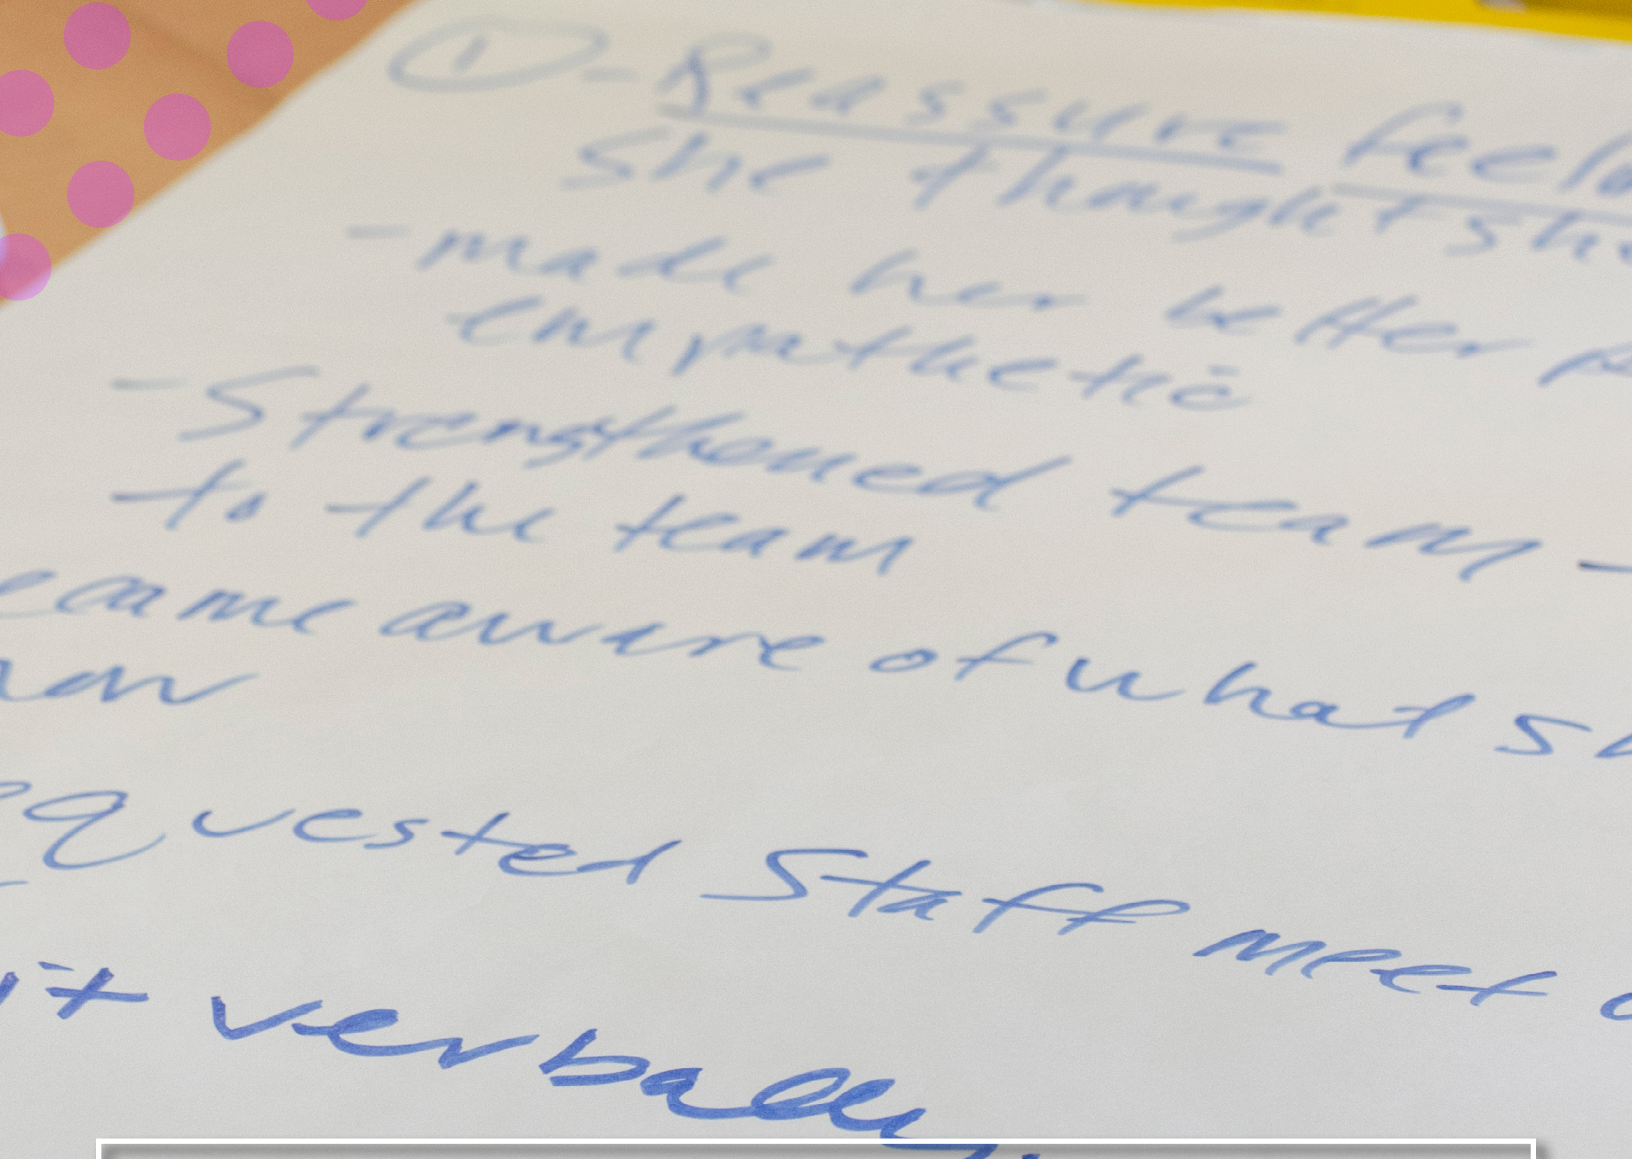 ① - Reassure feel
she thought sh
- made her better
empathetic
- Strengthened team -
to the team
came aware of what s
quested Staff meet
it verbally.